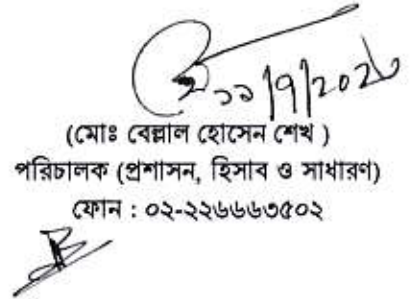 (মোঃ বেল্লাল হোসেন শেখ )
পরিচালক (প্রশাসন, হিসাব ও সাধারণ)
ফোন : ০২-২২৬৬৬৩৫০২